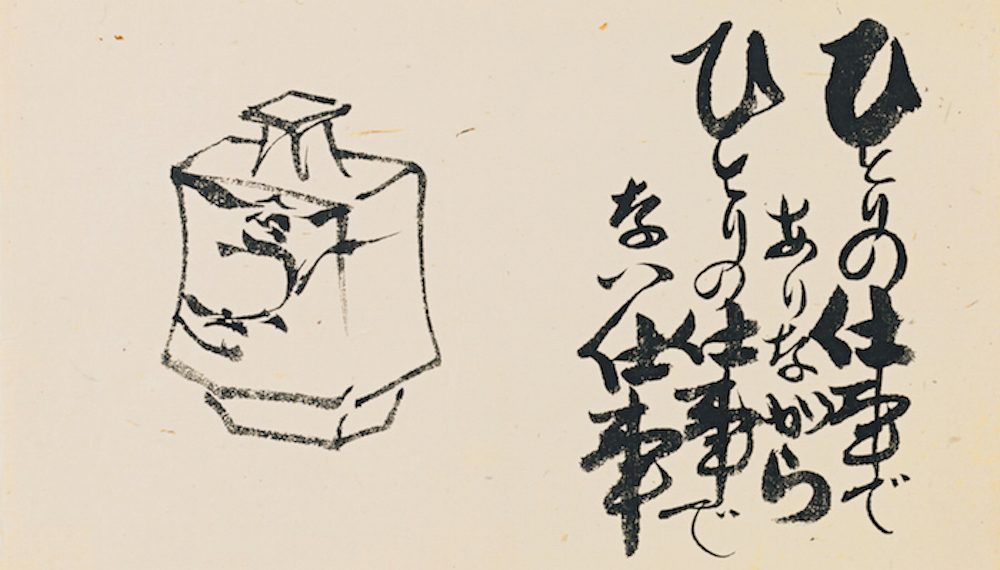 ひとりの仕事で
ありながら
ひとりの仕事で
ない仕事